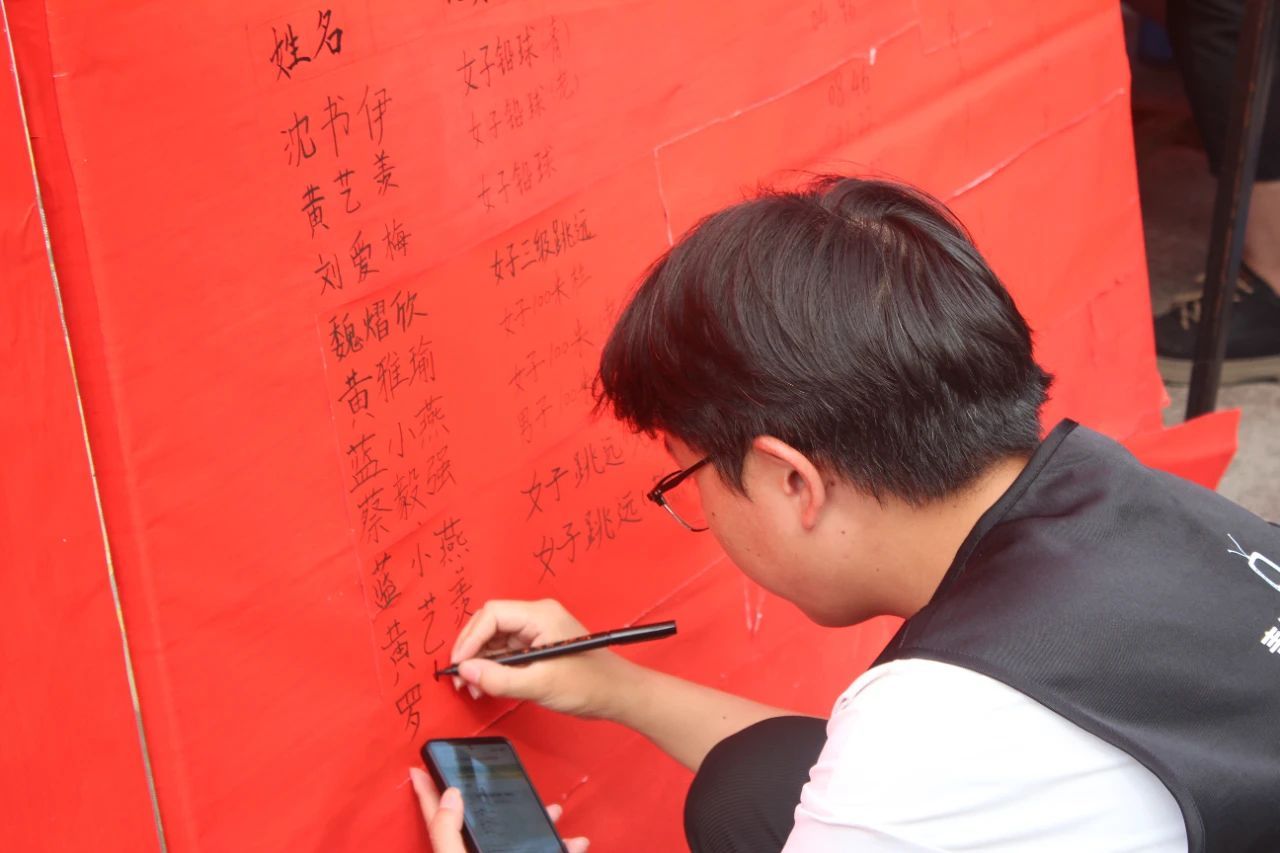 姓名
沈书伊 女子铅球(青)
黄艺羡 女子铅球
刘爱梅 女子铅球
魏熠欣 女子三级跳远
黄雅瑜 女子100米栏
蓝小燕 女子100米
蔡毅强 男子100米
蓝小燕 女子跳远
黄艺羡 女子跳远
罗